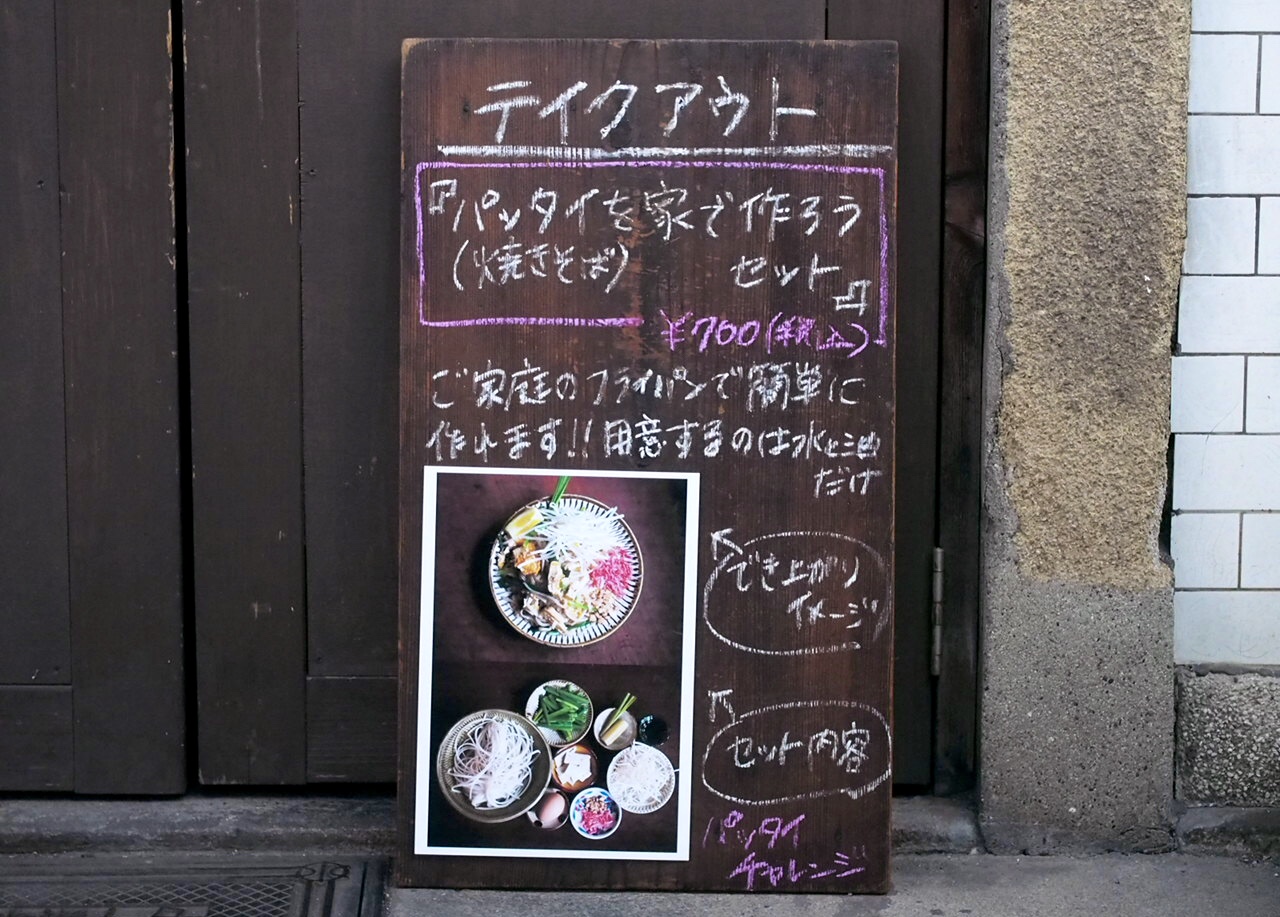 テイクアウト
『パッタイを家で作ろう
(焼きそば) セット』
¥700(税込)
ご家庭のフライパンで簡単に
作れます!!用意するのは水と油
だけ
できあがり
イメージ
セット内容
パッタイ
チャレンジ